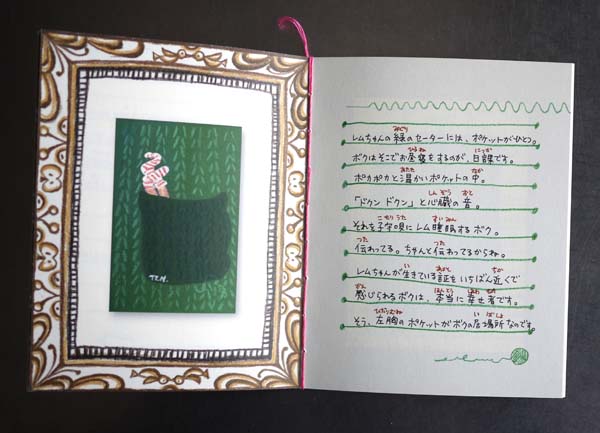 TEN.
レムちゃんの緑のセーターには、ポケットがひとつ。
ボクはそこでお昼寝をするのが、日課です。
ポカポカと温かいポケットの中。
「ドクン ドクン」と心臓の音。
それを子守唄にレム睡眠するボク。
伝わってる。ちゃんと伝わってるからね。
レムちゃんが生きている証をいちばん近くで
感じられるボクは、本当に幸せ者です。
そう、左胸のポケットがボクの居場所なのです。